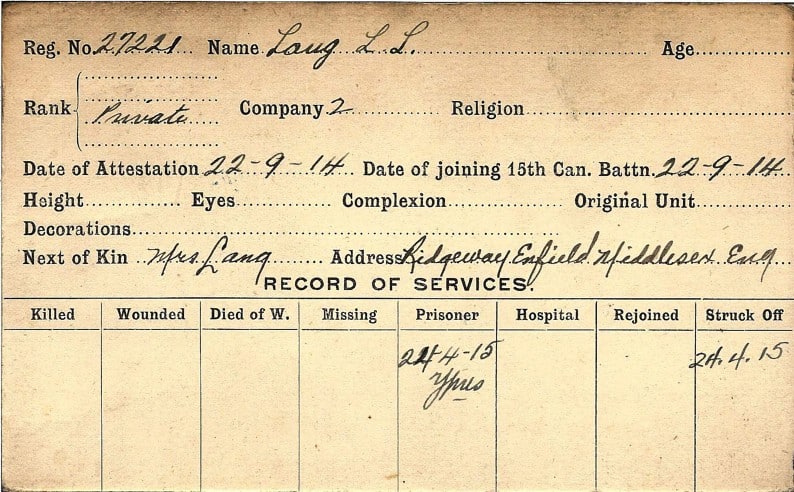 Reg. No. 27221 Name Lang L. L. Age
Rank Private Company 2 Religion
Date of Attestation 22-9-14 Date of joining 15th Can. Battn. 22-9-14
Height Eyes Complexion Original Unit
Decorations
Next of Kin Mrs Lang Address Ridgeway Enfield Middlesex Eng
RECORD OF SERVICES.
Killed Wounded Died of W. Missing Prisoner Hospital Rejoined Struck Off
24-4-15 24.4.15
Ypres